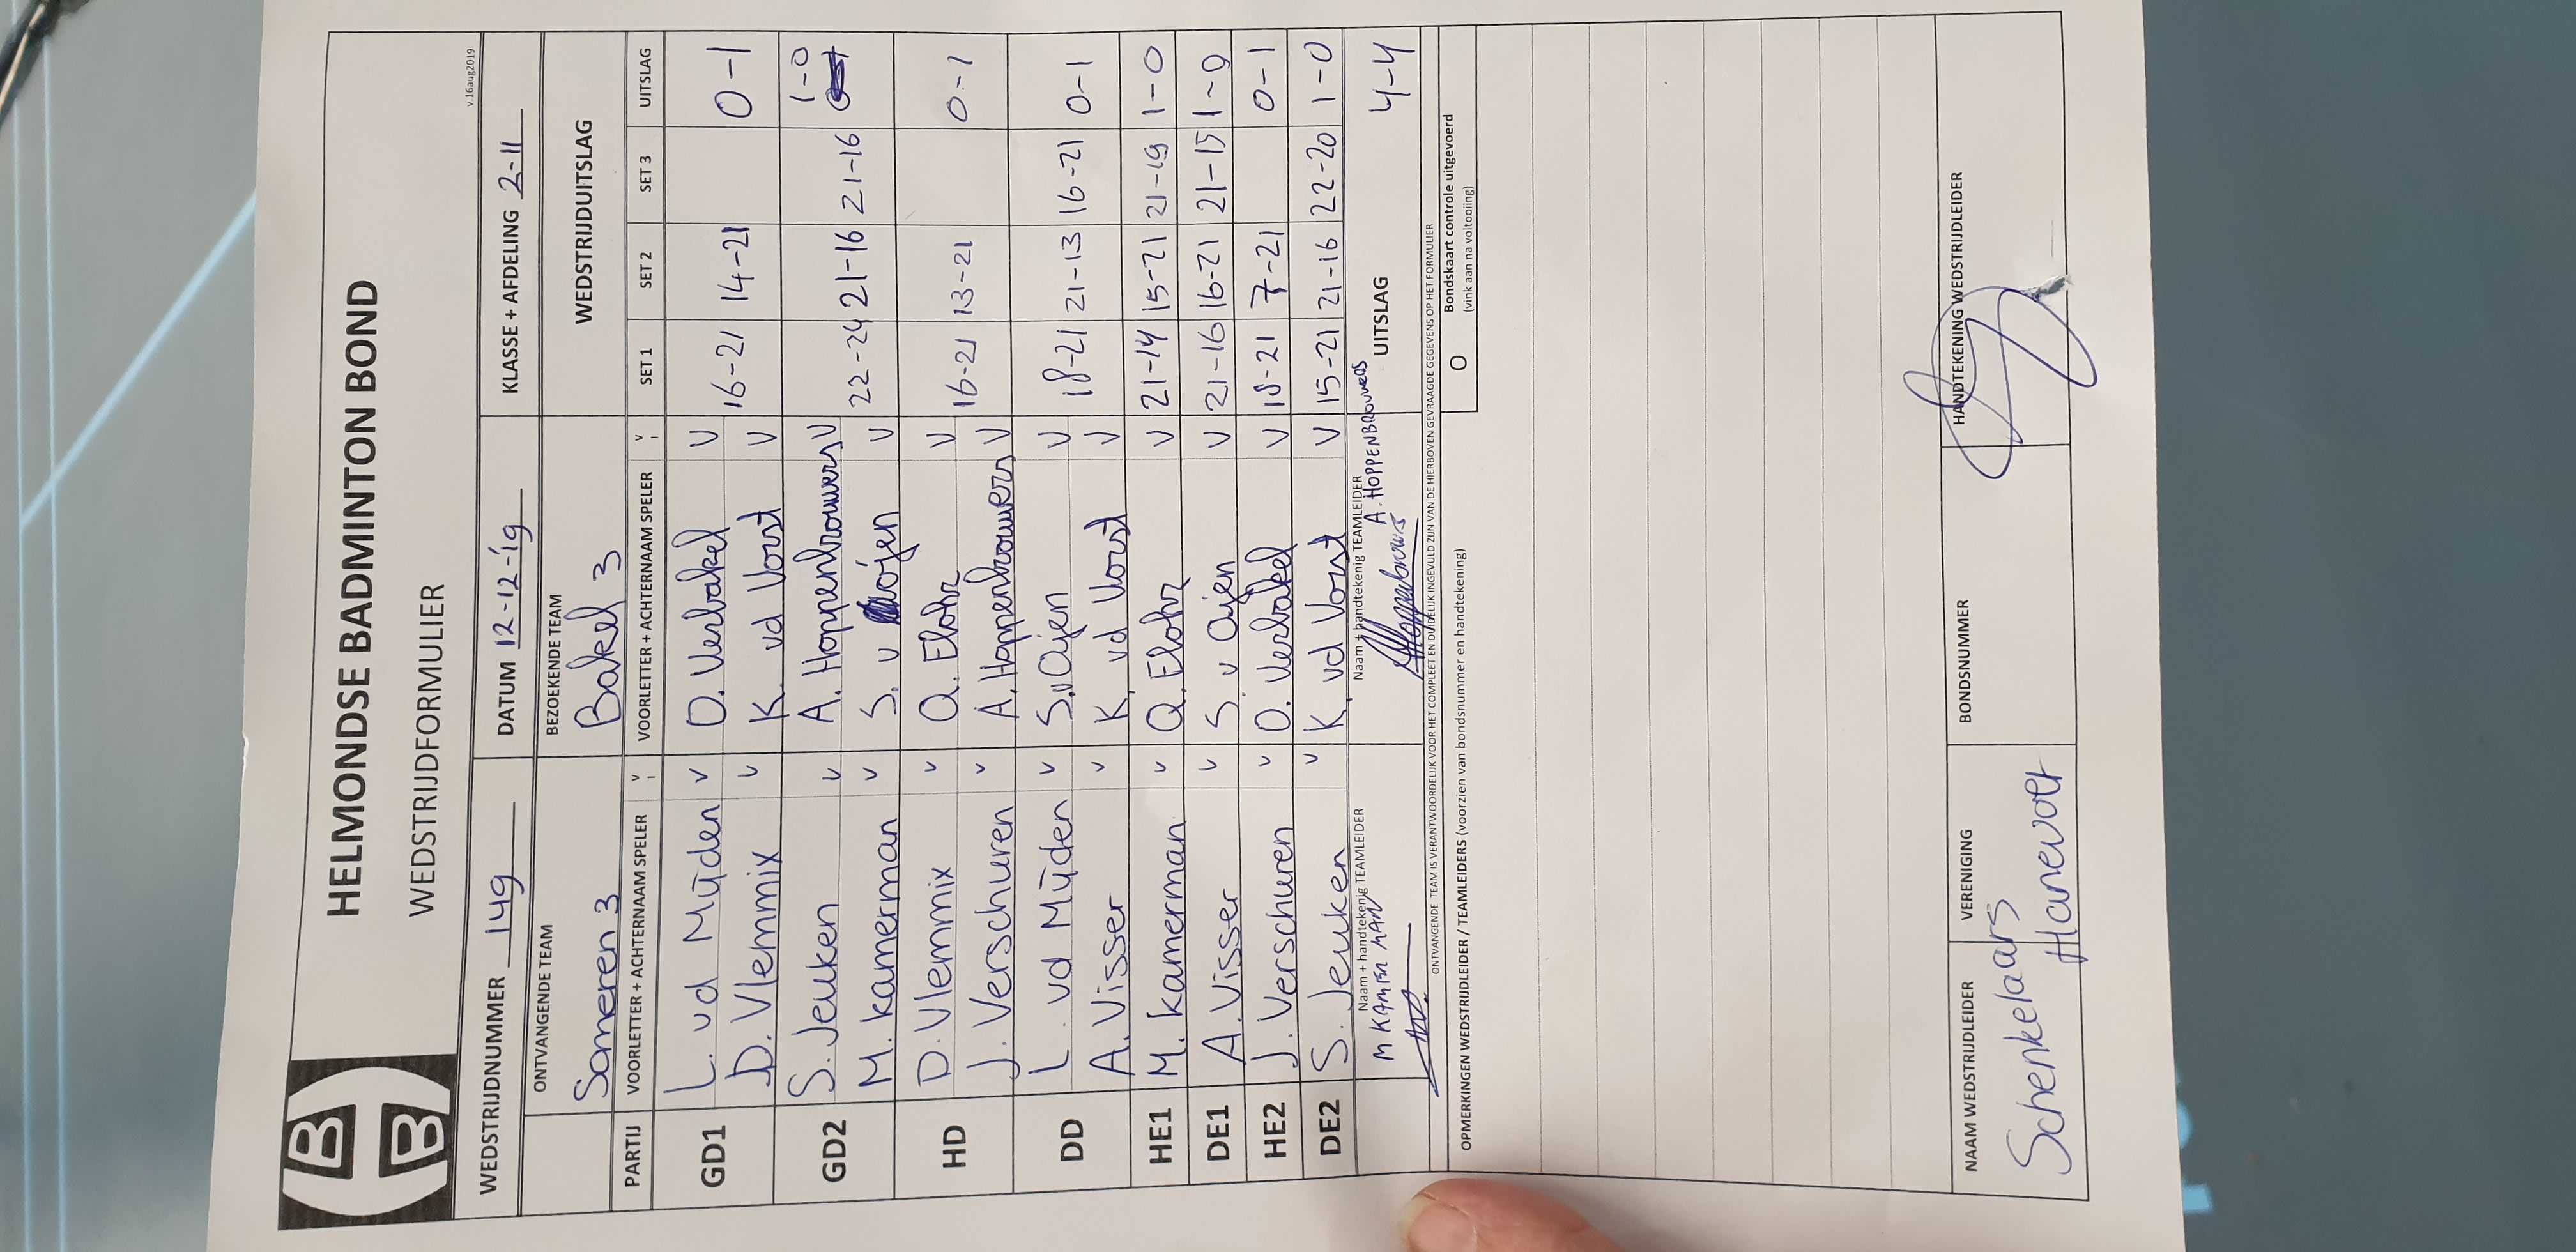 HELMONDSE BADMINTON BOND
WEDSTRIJDFORMULIER
v.16aug2019
WEDSTRIJDNUMMER 149 DATUM 12-12-19 KLASSE + AFDELING 2-11
ONTVANGENDE TEAM BEZOEKENDE TEAM WEDSTRIJDUITSLAG
Someren 3 Bakel 3
PARTIJ VOORLETTER + ACHTERNAAM SPELER V VOORLETTER + ACHTERNAAM SPELER V SET 1 SET 2 SET 3 UITSLAG
GD1 L. vd Mÿden v O. Verbakel V 16-21 14-21 0-1
D. Vlemmix v K. vd Vorst V
GD2 S. Jeuken v A. Hoppenbrouwers V 22-24 21-16 21-16 1-0
M. Kamerman v S. v Oijen V
HD D. Vlemmix v Q. Elohr V 16-21 13-21 0-1
J. Verschuren v A. Hoppenbrouwers V
DD L. vd Mÿden v S. v Oijen V 18-21 21-13 16-21 0-1
A. Visser v K. vd Vorst V
HE1 M. Kamerman v Q. Elohr V 21-14 15-21 21-19 1-0
DE1 A. Visser v S. v Oijen V 21-16 16-21 21-15 1-0
HE2 J. Verschuren v O. Verbakel V 18-21 7-21 0-1
DE2 S. Jeuken v K. vd Vorst V 15-21 21-16 22-20 1-0
Naam + handtekenig TEAMLEIDER Naam + handtekenig TEAMLEIDER UITSLAG 4-4
M KAMERMAN A. HOPPENBROUWERS
AHoppenbrouwers
ONTVANGENDE TEAM IS VERANTWOORDELIJK VOOR HET COMPLEET EN DUIDELIJK INGEVULD ZIJN VAN DE HIERBOVEN GEVRAAGDE GEGEVENS OP HET FORMULIER
OPMERKINGEN WEDSTRIJDLEIDER / TEAMLEIDERS (voorzien van bondsnummer en handtekening)
O Bondskaart controle uitgevoerd
(vink aan na voltooiing)
NAAM WEDSTRIJDLEIDER VERENIGING BONDSNUMMER HANDTEKENING WEDSTRIJDLEIDER
Schenkelaars Hanevoet